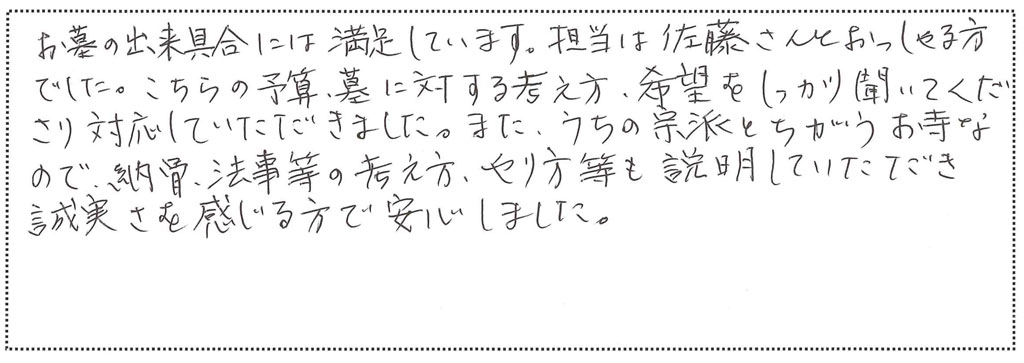 お墓の出来具合には満足しています。担当は佐藤さんとおっしゃる方
でした。こちらの予算、墓に対する考え方、希望をしっかり聞いてくだ
さり対応していただきました。また、うちの宗派とちがうお寺な
ので、納骨、法事等の考え方、やり方等も説明していただき
誠実さを感じる方で安心しました。